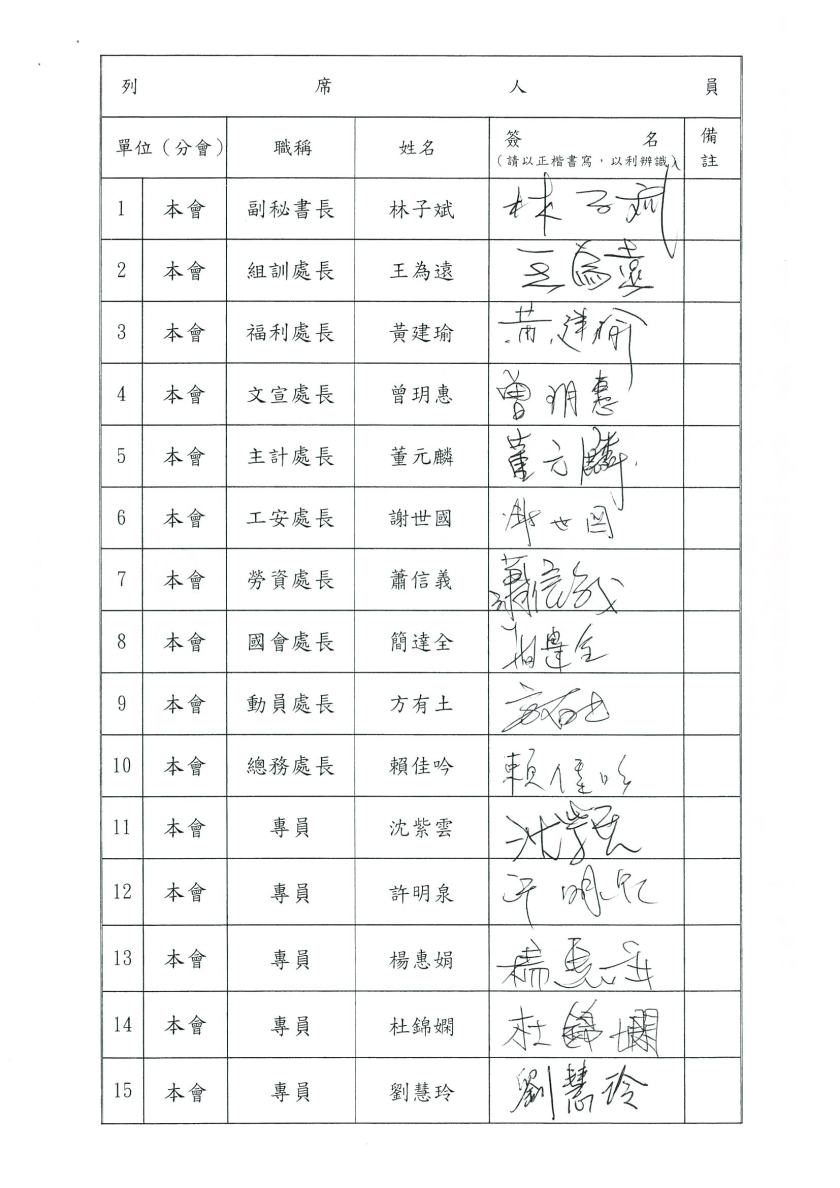 列 席 人 員
單位（分會） 職稱 姓名 簽 名 備註
（請以正楷書寫，以利辨識）
1 本會 副秘書長 林子斌 林子斌
2 本會 組訓處長 王為遠 王為遠
3 本會 福利處長 黃建瑜 黃建瑜
4 本會 文宣處長 曾玥惠 曾玥惠
5 本會 主計處長 董元麟 董元麟
6 本會 工安處長 謝世國 謝世国
7 本會 勞資處長 蕭信義 蕭信義
8 本會 國會處長 簡達全 簡達全
9 本會 動員處長 方有土 方有土
10 本會 總務處長 賴佳吟 賴佳吟
11 本會 專員 沈紫雲 沈紫雲
12 本會 專員 許明泉 許明泉
13 本會 專員 楊惠娟 楊惠娟
14 本會 專員 杜錦嫻 杜錦嫻
15 本會 專員 劉慧玲 劉慧玲